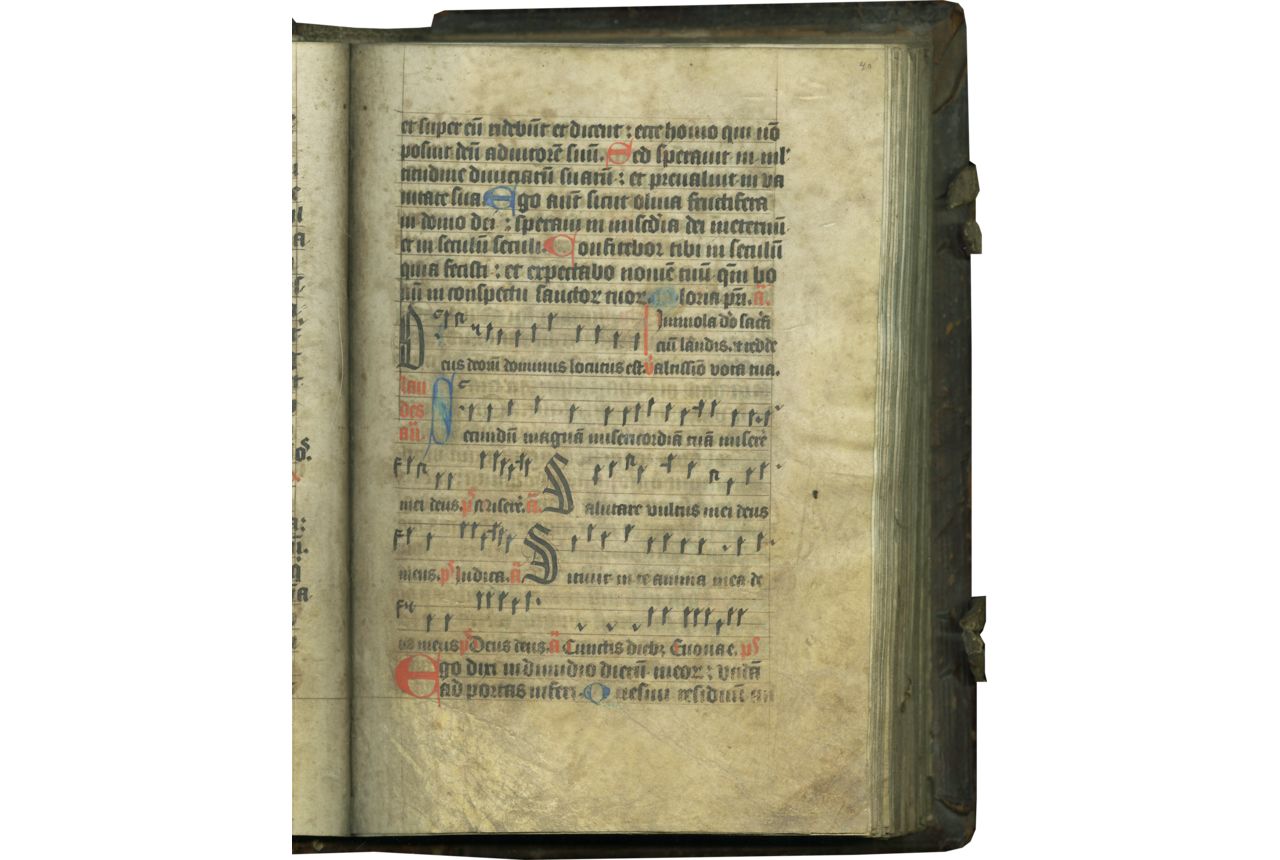 et super eū ridebūt et dicent : ecce homo qui nō
posuit deū adiutorē suū. Sed speravit in mul
titudine divitiarū suarū : et prevaluit in va
nitate sua Ego aūt sicut oliva fructifera
in domo dei : speravi in misc̄dia dei ineternū
et in seculū seculi. Confitebor tibi in seculū
quia fecisti : et expectabo nomē tuū qm̄ bo
nū in conspectu sanctoꝝ tuoꝝ. Gloria pr̄i. ā.
Immola dō sacri
ciū laudis. et redde
Deus deoꝝ dominus locutus est. altissīo vota tua.
lau
des
añ.
Secundū magnā misericordiā tuā misere
mei deus. ps Miserē. ā. Salutare vultus mei deus
meus. ps Judica. ā Sitivit in te anima mea de
us meus ps Deus deus. ā Cunctis diebꝫ Euouae. ps
Ego dixi in dimidio dieꝝ meoꝝ : vadā
ad portas inferi. Quesivi residuū an